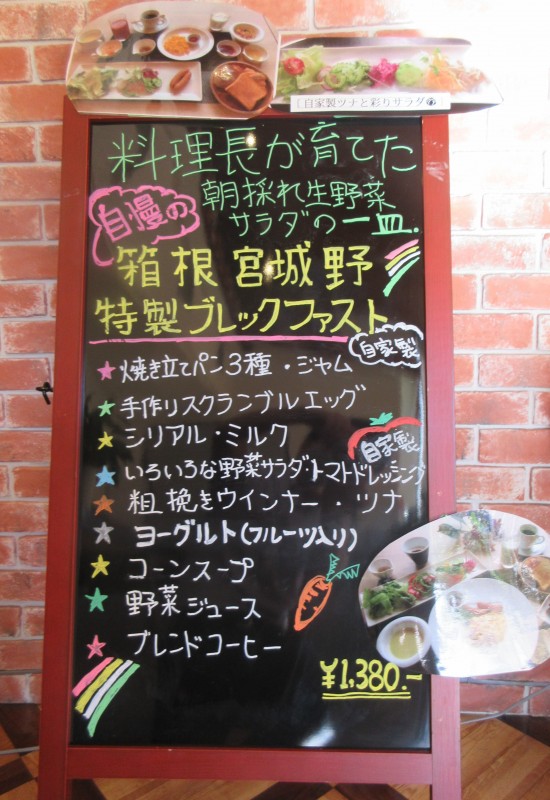 [自家製ツナと彩りサラダ]
料理長が育てた
自慢の
朝採れ生野菜
サラダの一皿.
箱根宮城野
特製ブレックファスト
★焼き立てパン3種・ジャム
自家製
★手作りスクランブルエッグ
★シリアル・ミルク
自家製
★いろいろな野菜サラダトマトドレッシング
★粗挽きウインナー・ツナ
★ヨーグルト(フルーツ入り)
★コーンスープ
★野菜ジュース
★ブレンドコーヒー
¥1,380.-